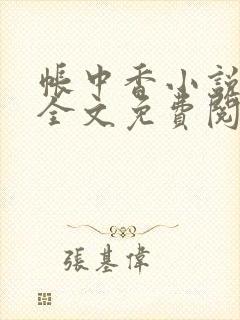 帳中香小説
全文免費閱
張基偉